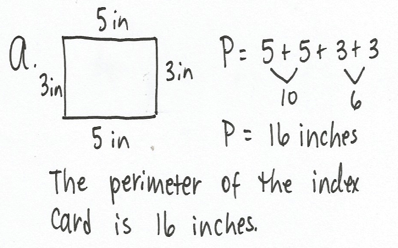 5 in
a.
3in
3in
5 in
P= 5+5+3+3
10 6
P= 16 inches
The perimeter of the index
Card is 16 inches.